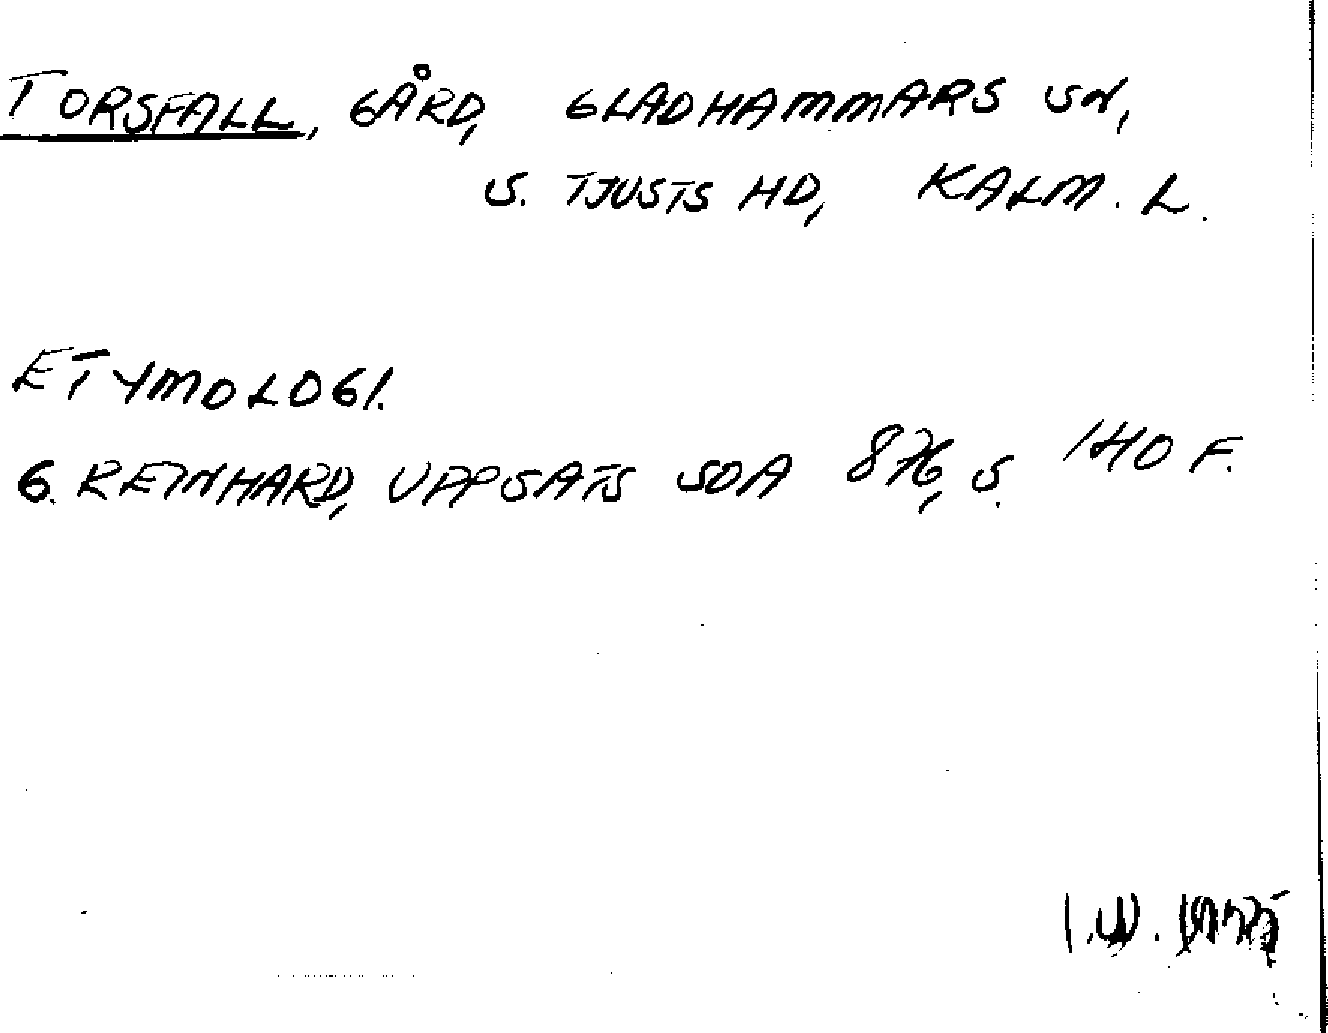 TORSFALL, GÅRD, GLADHAMMARS SN,
S. TJUSTS HD, KALM. L.
ETYMOLOGI.
G. REINHARD, UPPSATS SOA 876, S. 140 F.
I.W. 1975